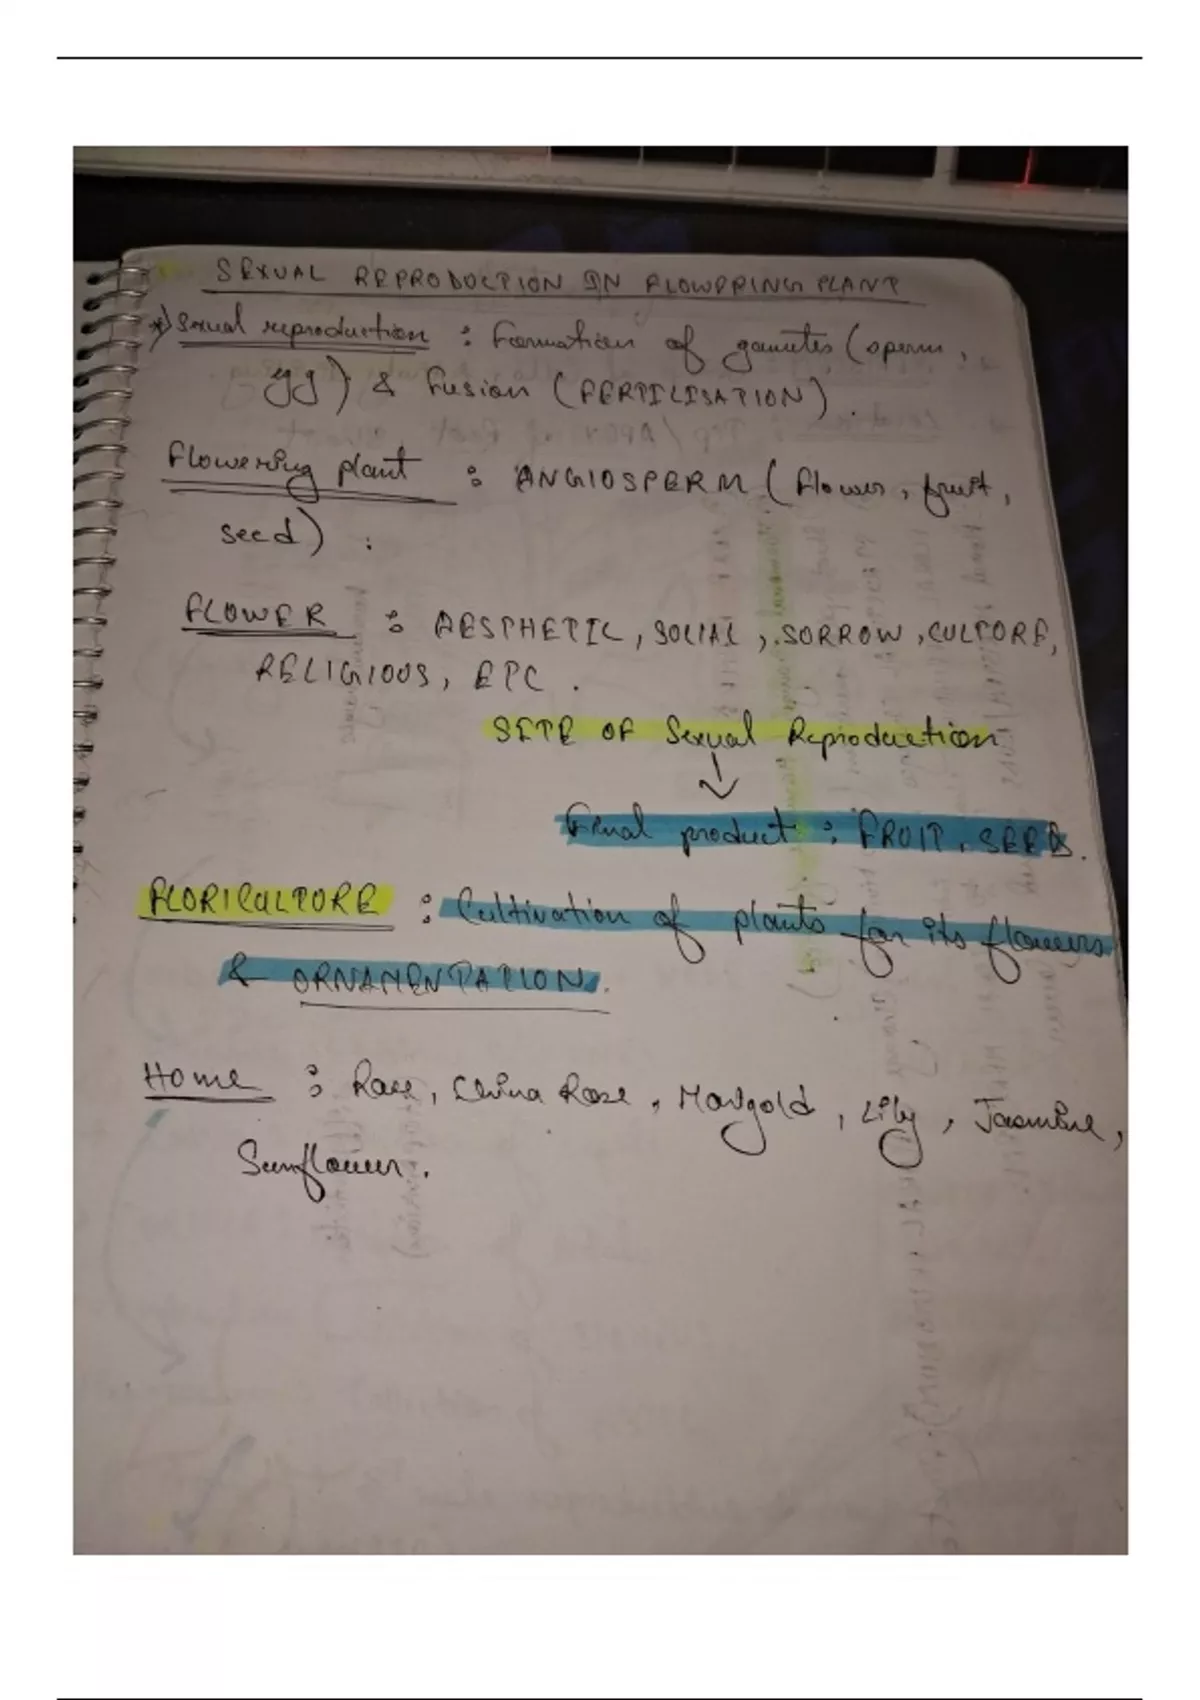 SEXUAL REPRODUCTION IN FLOWERING PLANT
*) Sexual reproduction : Formation of gametes (sperm,
egg) & Fusion (FERTILISATION).
Flowering plant : ANGIOSPERM (Flower, fruit,
seed) :
FLOWER : AESTHETIC, SOCIAL, SORROW, CULTURE,
RELIGIOUS, ETC.
SITE OF Sexual Reproduction
↓
Final product : FRUIT, SEEDS.
FLORICULTURE : Cultivation of plants for its flowers
& ORNAMENTATION.
Home : Rose, China Rose, Marigold, Lily, Jasmine,
Sunflower.